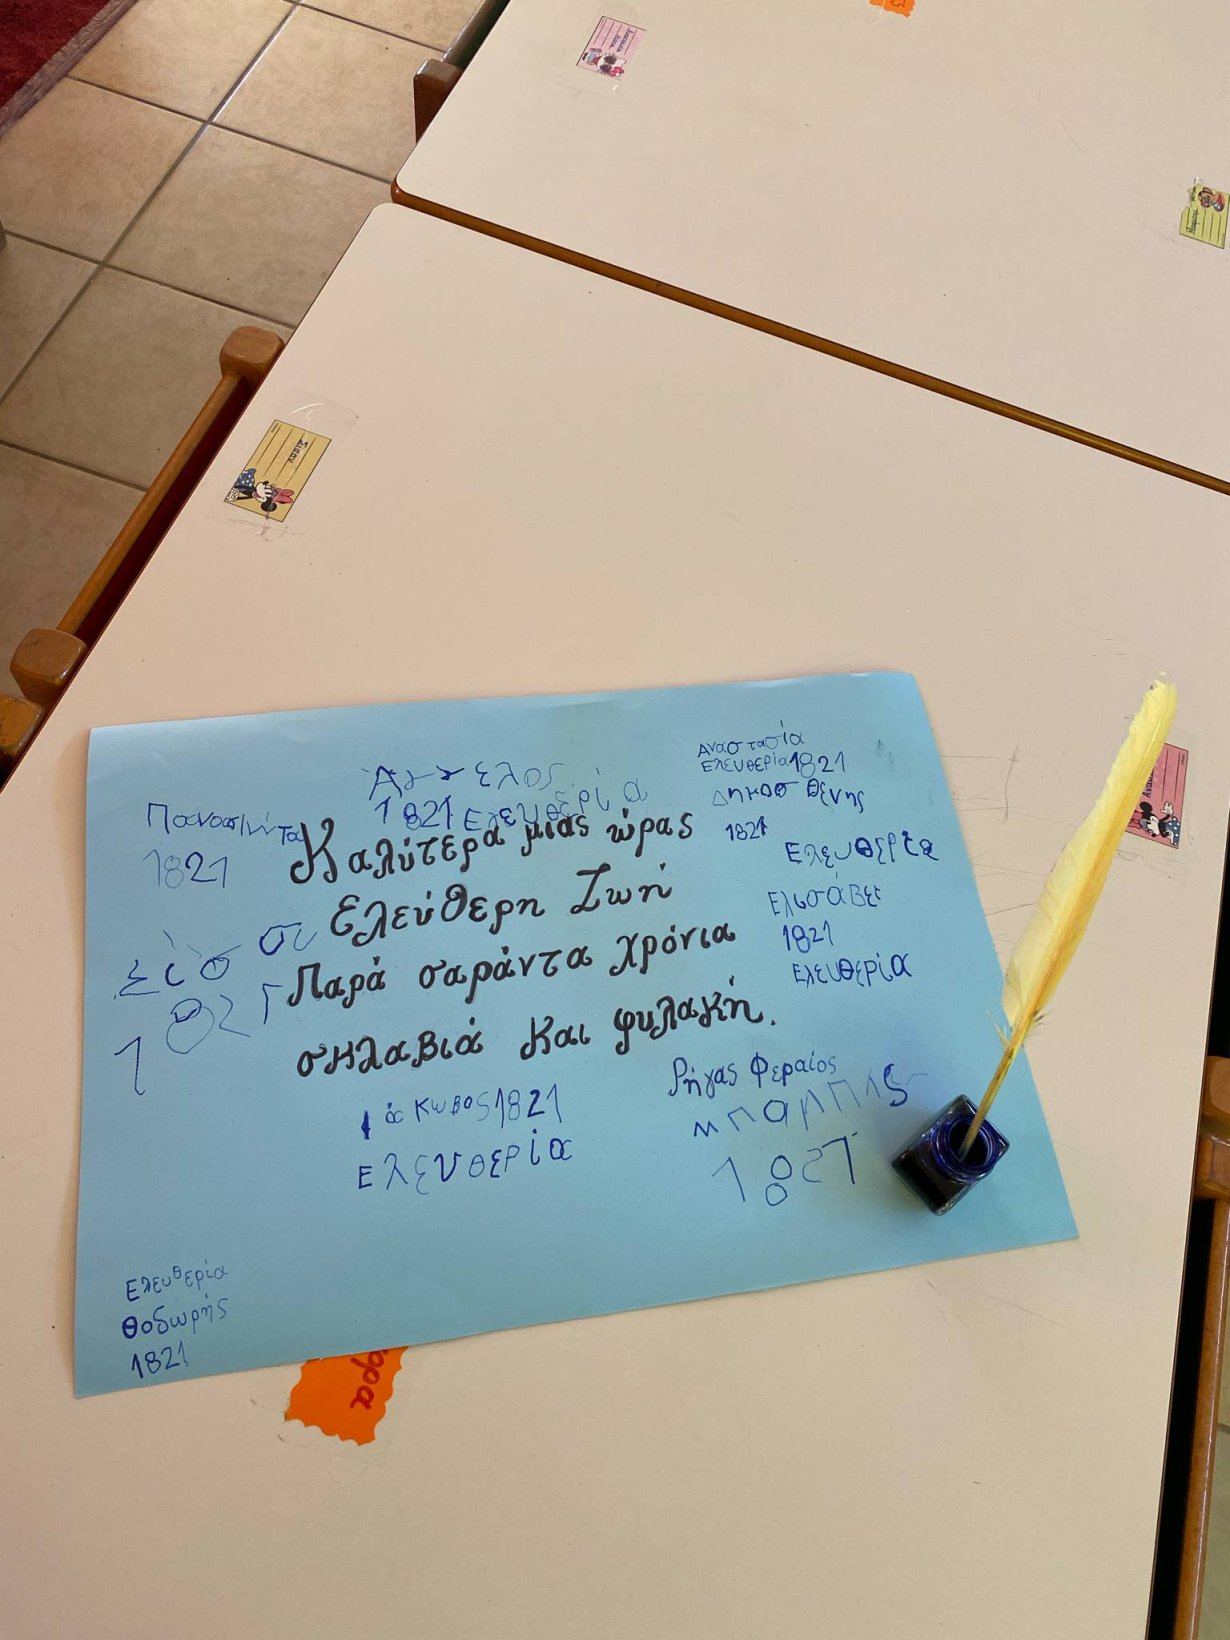 Άγγελος
1821 Ελευθερία
Αναστασία
Ελευθερία 1821
Δημοσθένης
1821
Ελευθερία
1821
Καλύτερα μιας ώρας
Ελεύθερη Ζωή
Παρά σαράντα χρόνια
σκλαβιά και φυλακή.
Ρήγας Φεραίος
Ελισάβετ
1821
Ελευθερία
Ιάκωβος 1821
Ελευθερία
μπαμπις
1821
Ελευθερία
Θοδωρής
1821